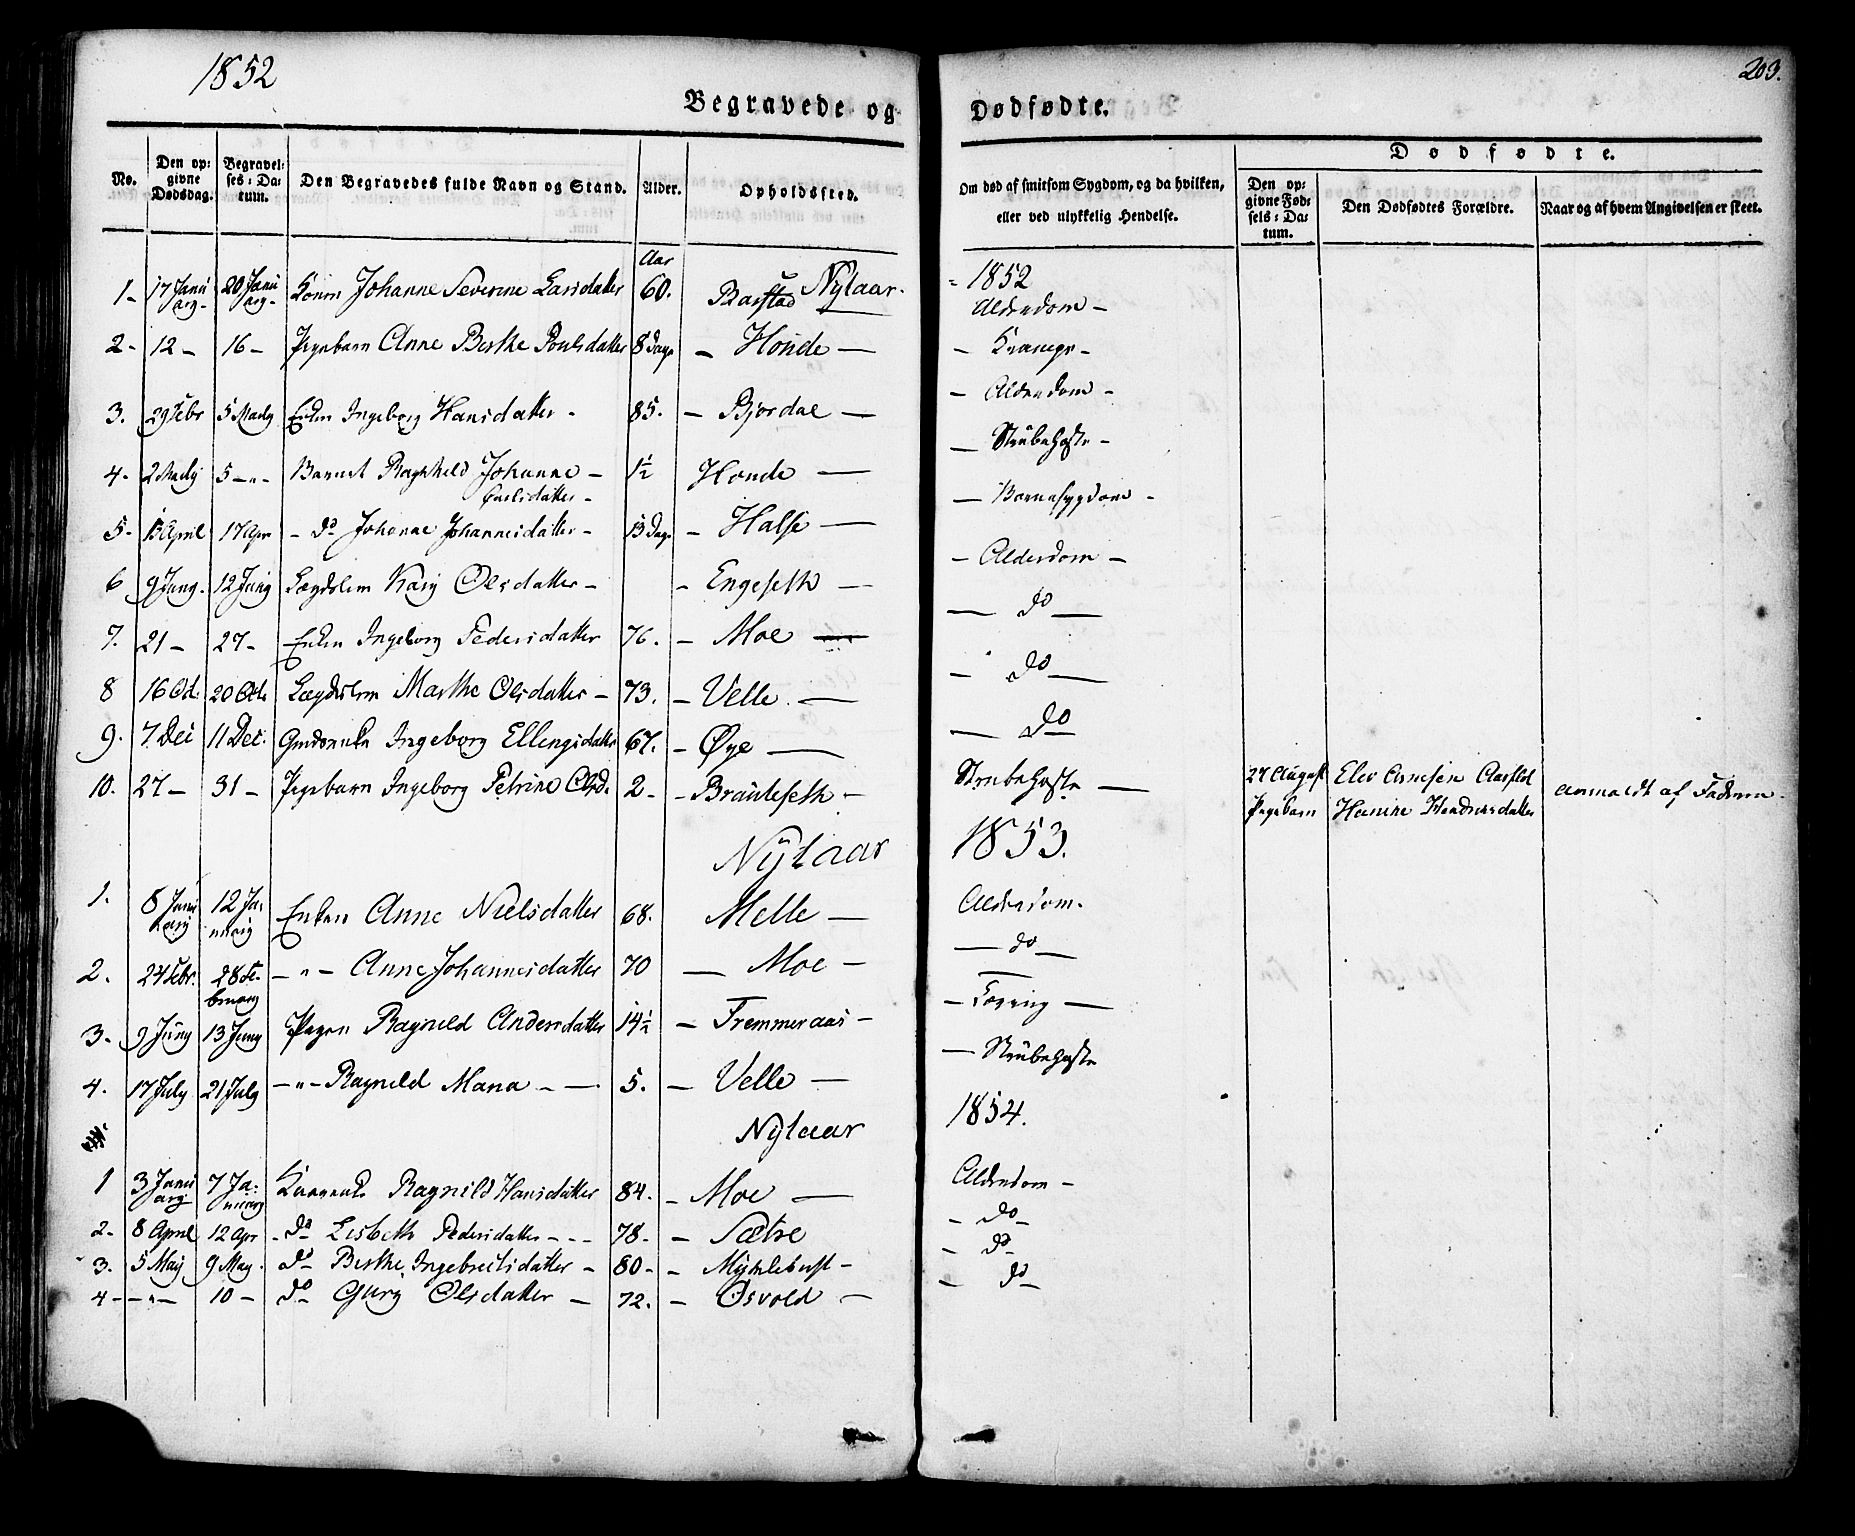 1852
203.
Begravede og Dødfødte.
No. Den opgivne Dødsdag. Begravelses-Datum. Den Begravedes fulde Navn og Stand. Alder. Opholdssted. Om død af smitsom Sygdom, og da hvilken, eller ved ulykkelig Hendelse.
Dødfødte.
Den opgivne Fødsels-Datum. Den Dødfødtes Forældre. Naar og af hvem Angivelsen er skeet.
Aar
Nytaar. 1852
1- 17 Januarj- 20 Januarj- Konen Johanne Severine Larsdatter 60. Barstad Alderdom -
2- 12 - 16 - Pigebarn Anne Berthe Poulsdatter 8 Dage - Honde — - Krampe -
3. 29 Febr 5 Martj Enken Ingeborg Hansdatter - 85. - Bjordal — - Alderdom -
4- 2 Martj 5 -"- Barnet Ragnhild Johanne - Carlsdatter - 1½ Honde — - Strubehoste -
5- 13 April 17 Apr - do Johanne Johannesdatter - 13 Dage - Halse — - Barnesygdom -
6 9 Junj. 12 Junj Lægdslem Karj Olsdatter - - Engeseth — - Alderdom -
7. 21 - 27 - Enken Ingeborg Pedersdatter 76. - Moe — do —
8 16 Oct. 20 Octb Lægdslem Marthe Olsdatter - 73. - Velle — - do —
9. 7. Dec 11 Dec. Ingeborg Ellingsdatter 67. - Øye — — do
10. 27 - 31 - Pigebarn Ingeborg Petrine Olsd. 2 - - Brauteseth - Strubehoste —
27 August Pigebarn Elev Arnesen Aarflot Hanine Hendricsdatter anmældt af Faderen.
Nytaar 1853.
1. 8 Januarj 12 Januarj Enken Anne Nielsdatter 68. Melle — Alderdom.
2. 24 Febr. 28 Februarj -"- Anne Johannesdatter 70 — Moe - — do —
3- 9 Junj 13 Junj Pigen Ragnild Andersdatter 14½ - Fremmeraas - - Tæring —
4. 17 July 21 July -"- Ragnild Maria - — 5. - Velle — — Strubehoste
Nytaar 1854.
1 3 Januarj 7 Januarj Ragnild Hansdatter 84. - Moe — Alderdom -
2- 8 April 12 Apr - do Lisbeth Pedersdatter - - - 78 - - Sætre - do -
3. 5 Maj 9 Maj. do Berthe Ingebreitsdatter - 80 - - Myklebust - - do
4 - -"- 10 - do Gurj Olsdatter — 72. - Osvold — - do -